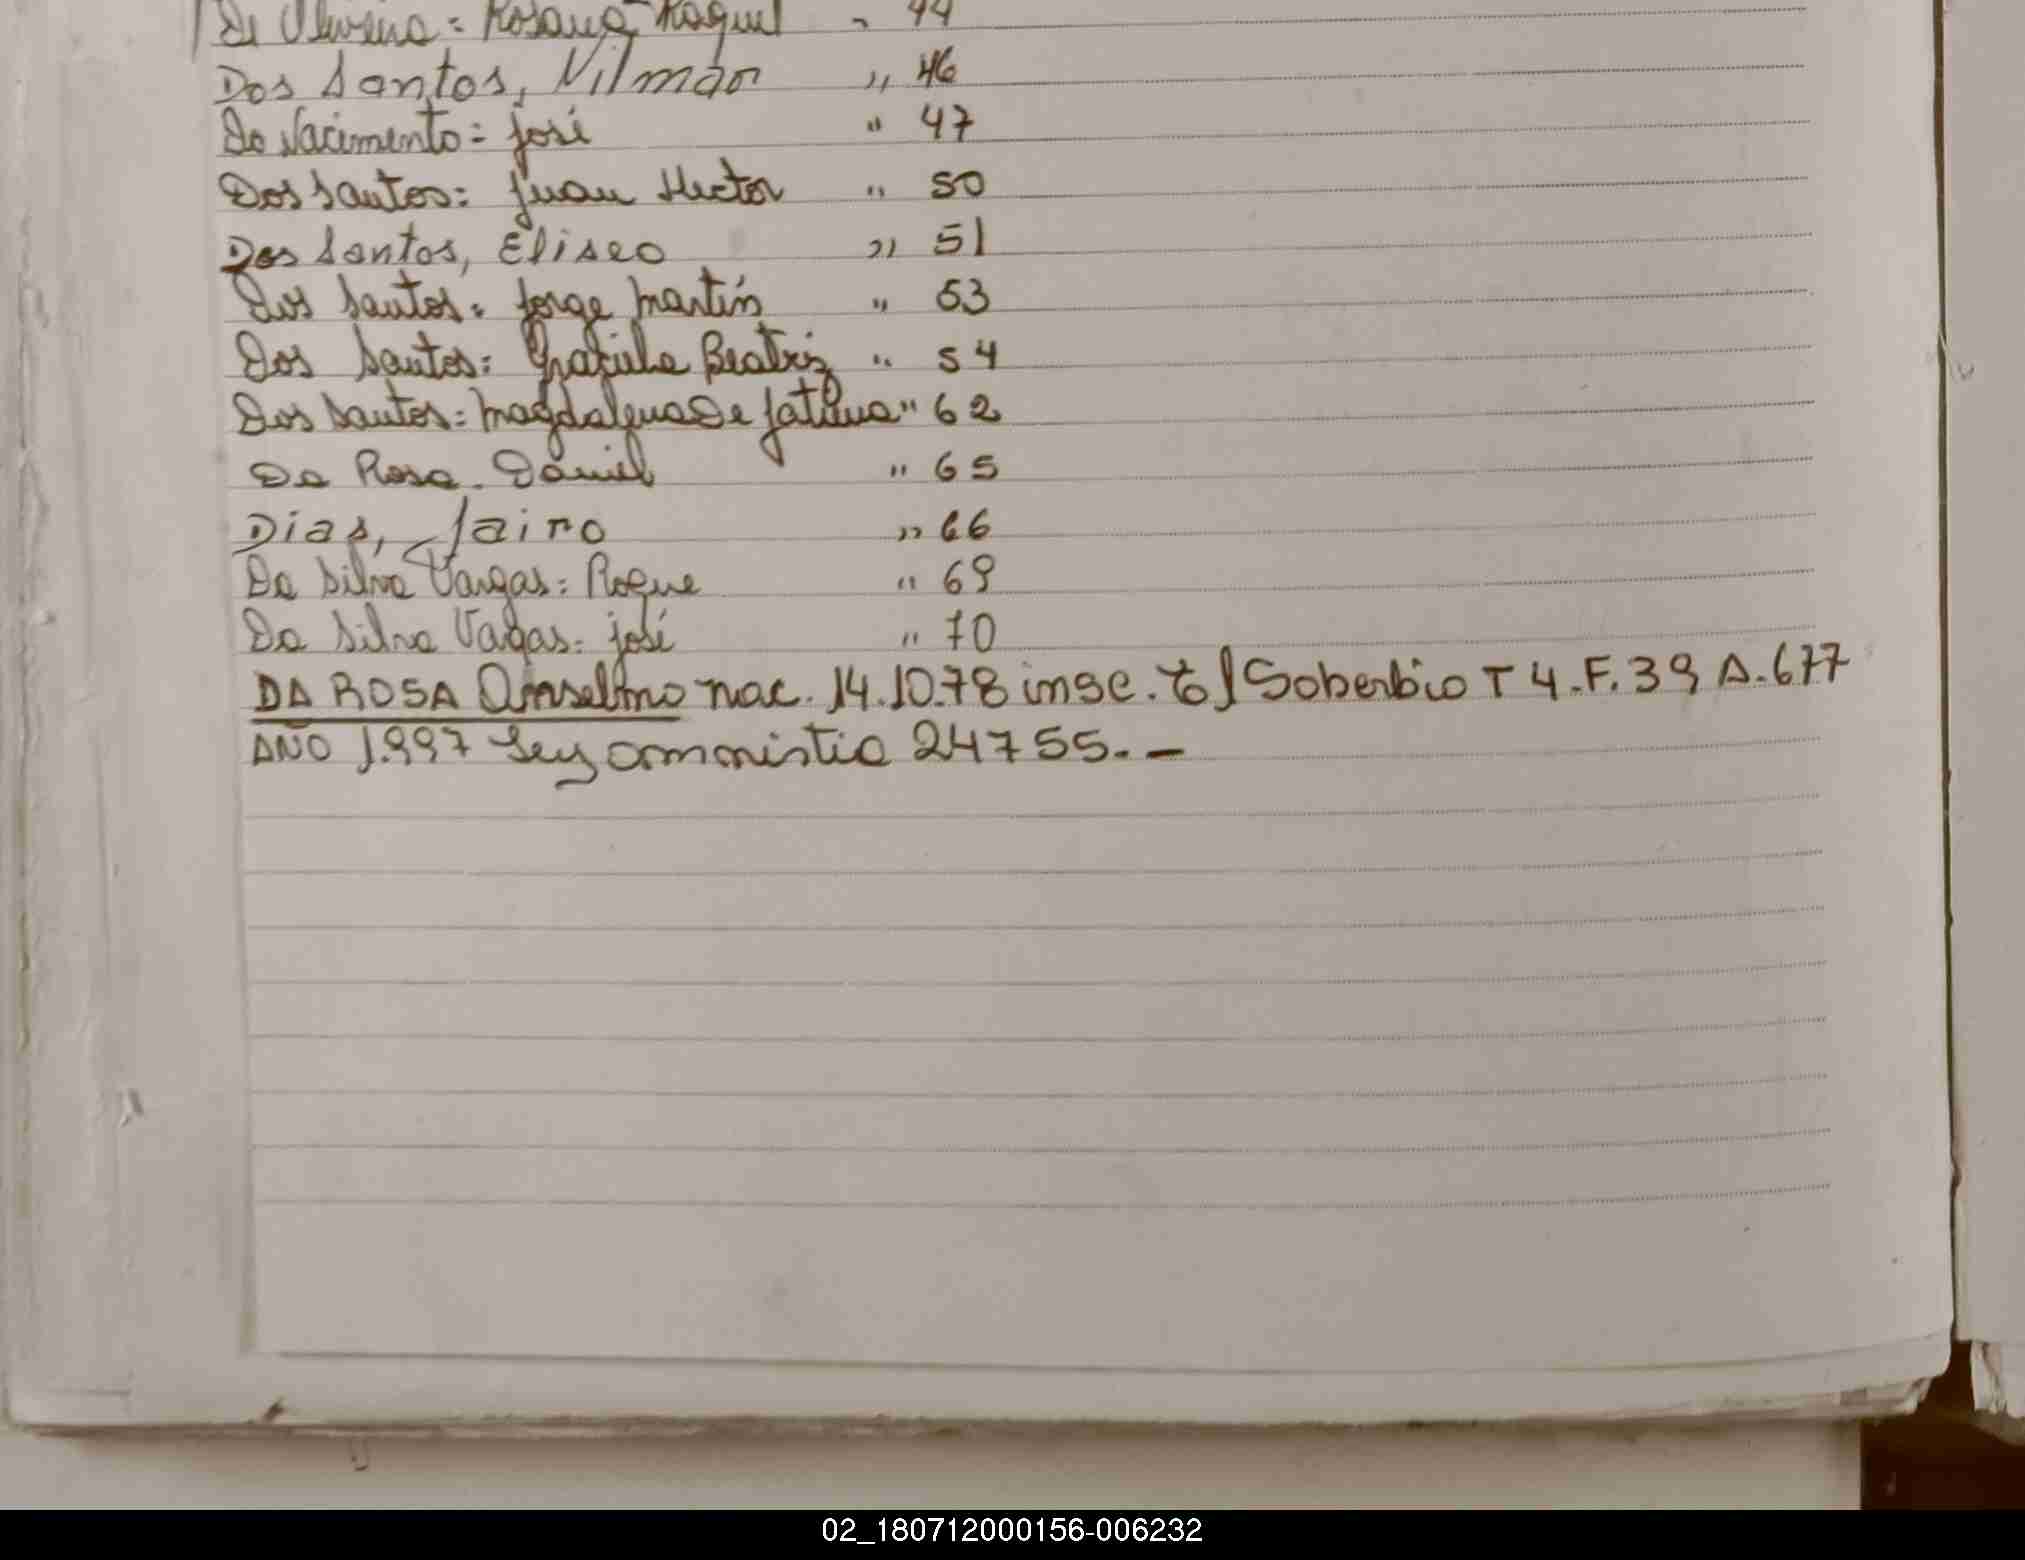 De Oliveira = Rosana Raquel " 44
Dos Santos, Nilmar " 46
Do Nacimento = José " 47
Dos Santos: Juan Hector " 50
Dos Santos, Eliseo " 51
Dos Santos: Jorge Martín " 53
Dos Santos: Graciela Beatriz " 54
Dos Santos: Magdalena De Fatima " 62
Da Rosa. Daniel " 65
Dias, Jairo " 66
Da Silva Vargas: Roque " 69
Da Silva Vagas: José " 70
DA ROSA Anselmo nac. 14.10.78 insc. Soberbio T 4.F.39 A.677
AÑO 1.997 Ley ammistia 24755.-
02_180712000156-006232